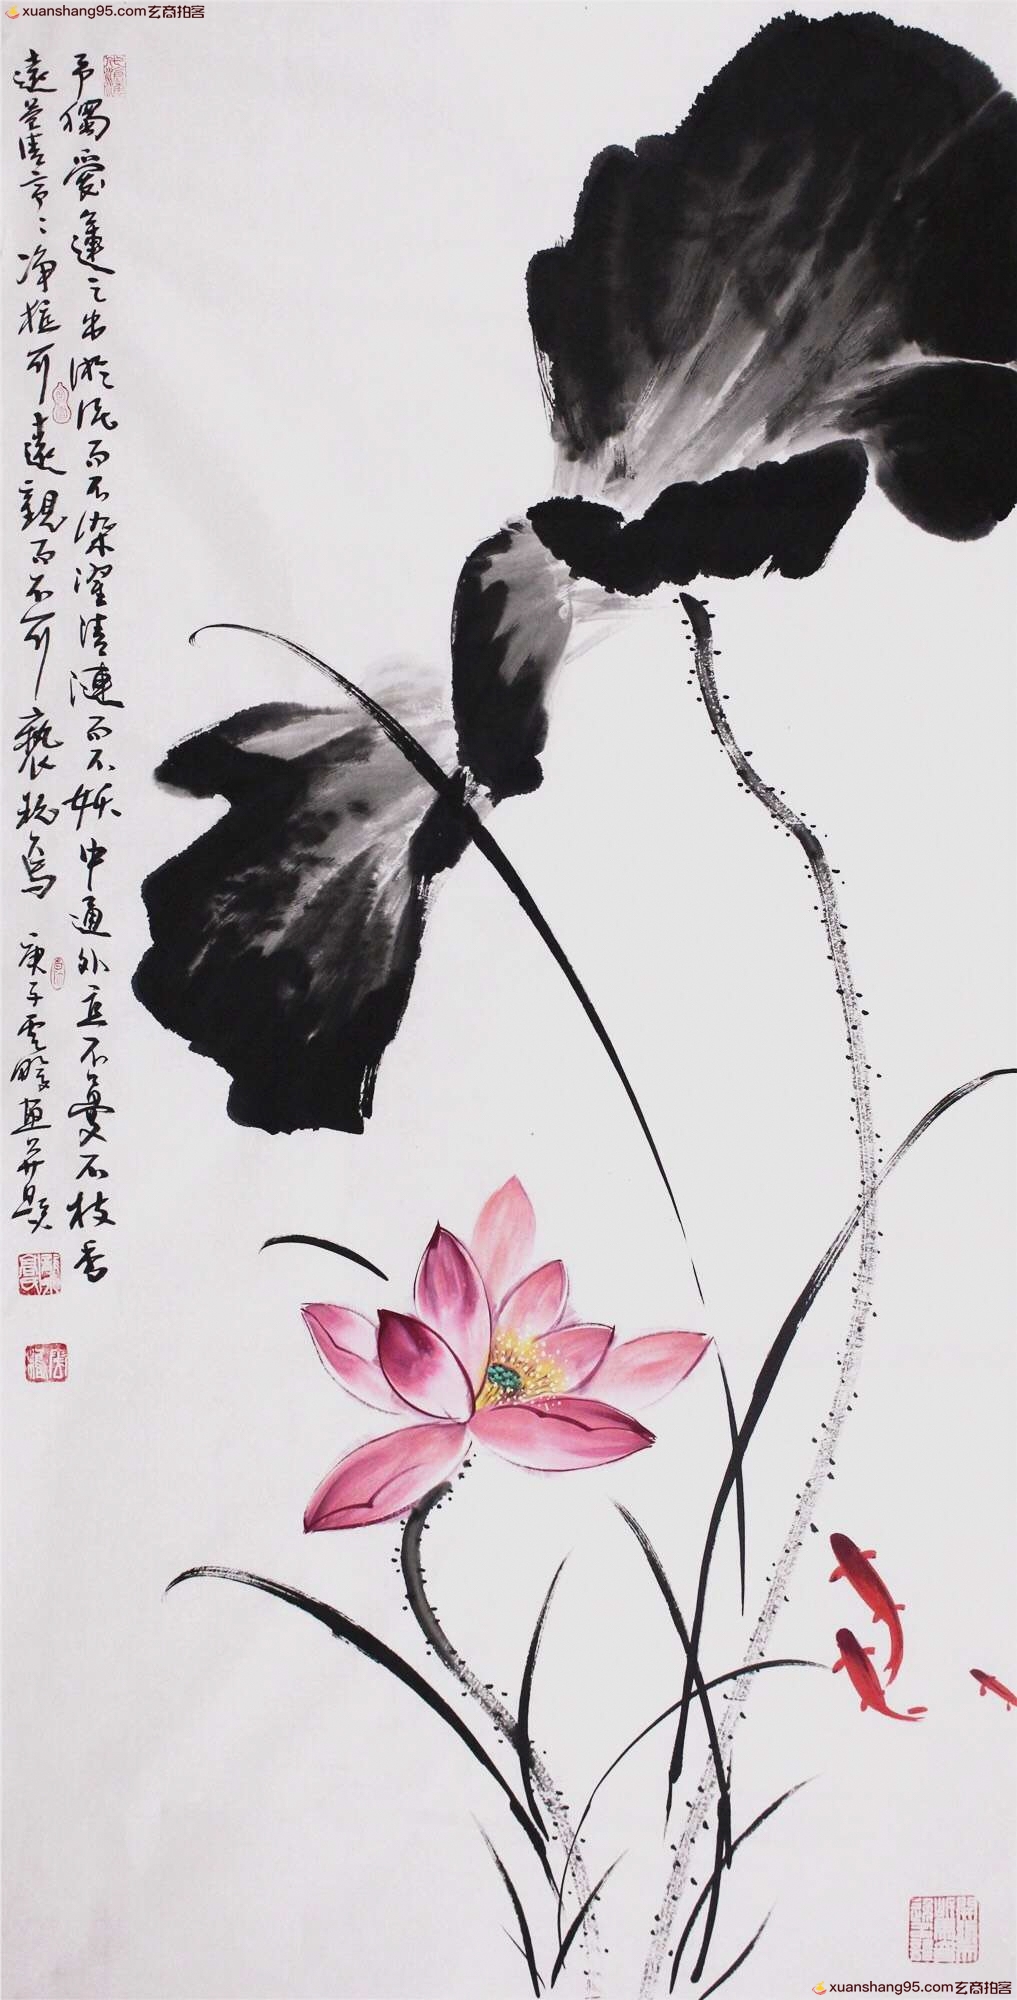 xuanshang95.com玄商拍客
予獨愛蓮之出淤泥而不染濯清漣而不妖中通外直不蔓不枝香
遠益清亭亭淨植可遠觀而不可褻玩焉 庚子雲畫並題
xuanshang95.com玄商拍客